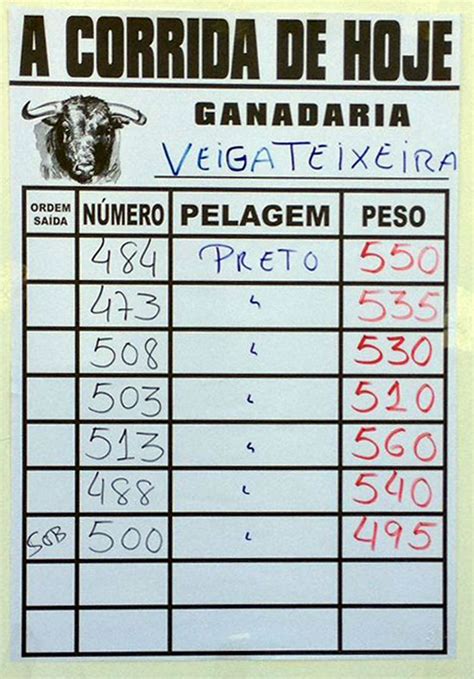 A CORRIDA DE HOJE
GANADARIA
VEIGA TEIXEIRA
ORDEM SAÍDA NÚMERO PELAGEM PESO
484 PRETO 550
473 " 535
508 " 530
503 " 510
513 " 560
488 " 540
SOB 500 " 495